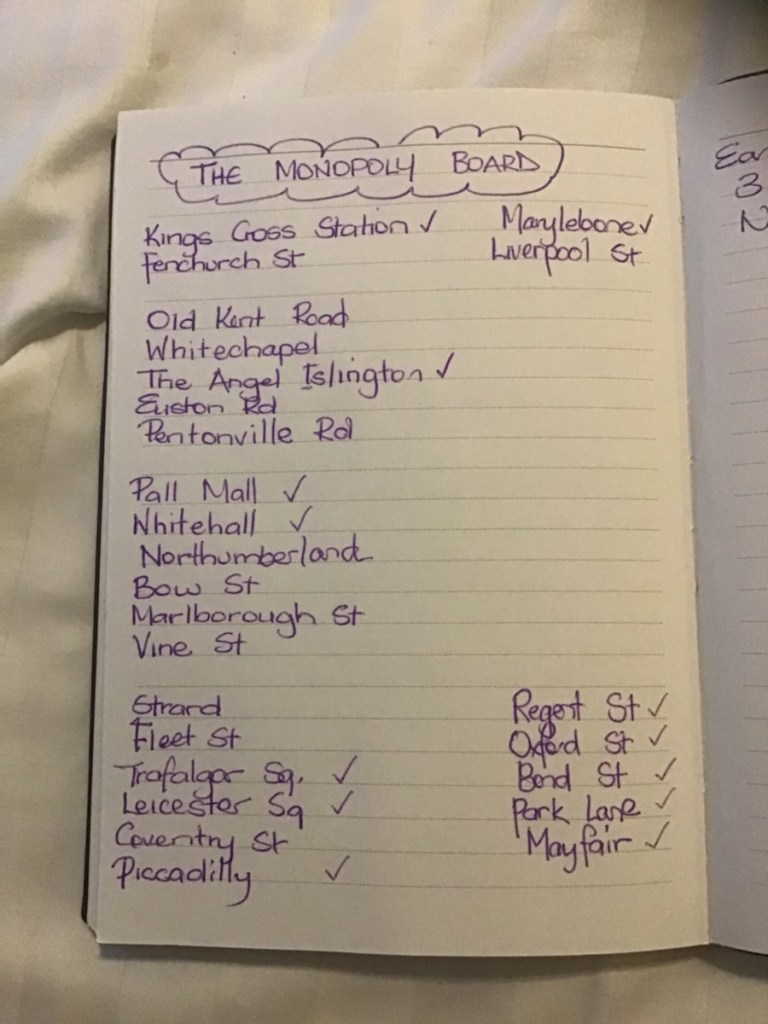 THE MONOPOLY BOARD
Kings Cross Station ✓ Marylebone ✓
Fenchurch St Liverpool St
Old Kent Road
Whitechapel
The Angel Islington ✓
Euston Rd
Pentonville Rd
Pall Mall ✓
Whitehall ✓
Northumberland
Bow St
Marlborough St
Vine St
Strand Regent St ✓
Fleet St Oxford St ✓
Trafalgar Sq. ✓ Bond St ✓
Leicester Sq ✓ Park Lane ✓
Coventry St Mayfair ✓
Piccadilly ✓
3
N